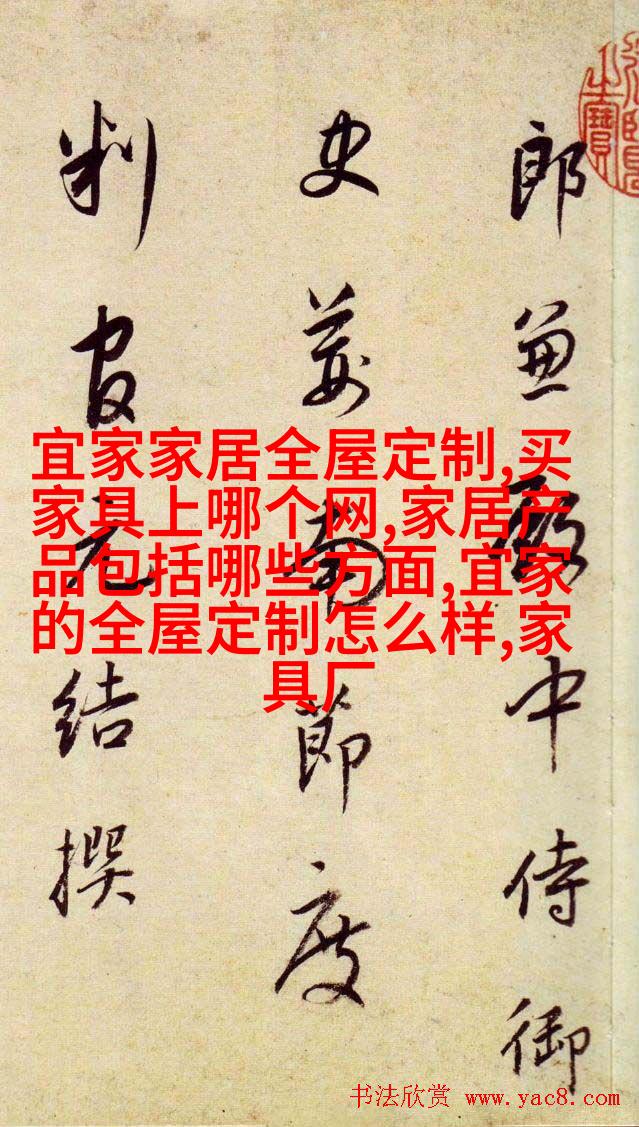 郎兼殿中侍御
史荊南節度
判官元結撰
宜家家居全屋定制,买
家具上哪个网,家居产
品包括哪些方面,宜家
的全屋定制怎么样,家
具厂
书法欣赏 www.yac8.com